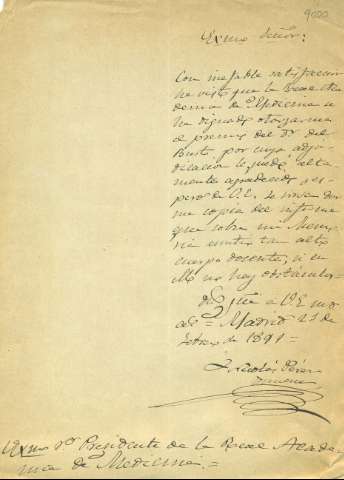 9000
Exmo Señor:
Con inefable satisfacción
he visto que la Real Aca
demia de Medicina se
ha dignado otorgarme
el premio del Dr. del
Busto, por cuya adju
dicación le quedé alta
mente agradecido, es-
pero de V.E. se
me copia del informe
que sobre mi Memo
ria emitió tan alto
cuerpo docente, si en
ello no hay obstáculo =
Dios gue a V.E. ms
as = Madrid 21 de
de 1891 =
Nicolás Pérez
Jimenez
Exmo Sr. Presidente de la Real Acade
mia de Medicina =